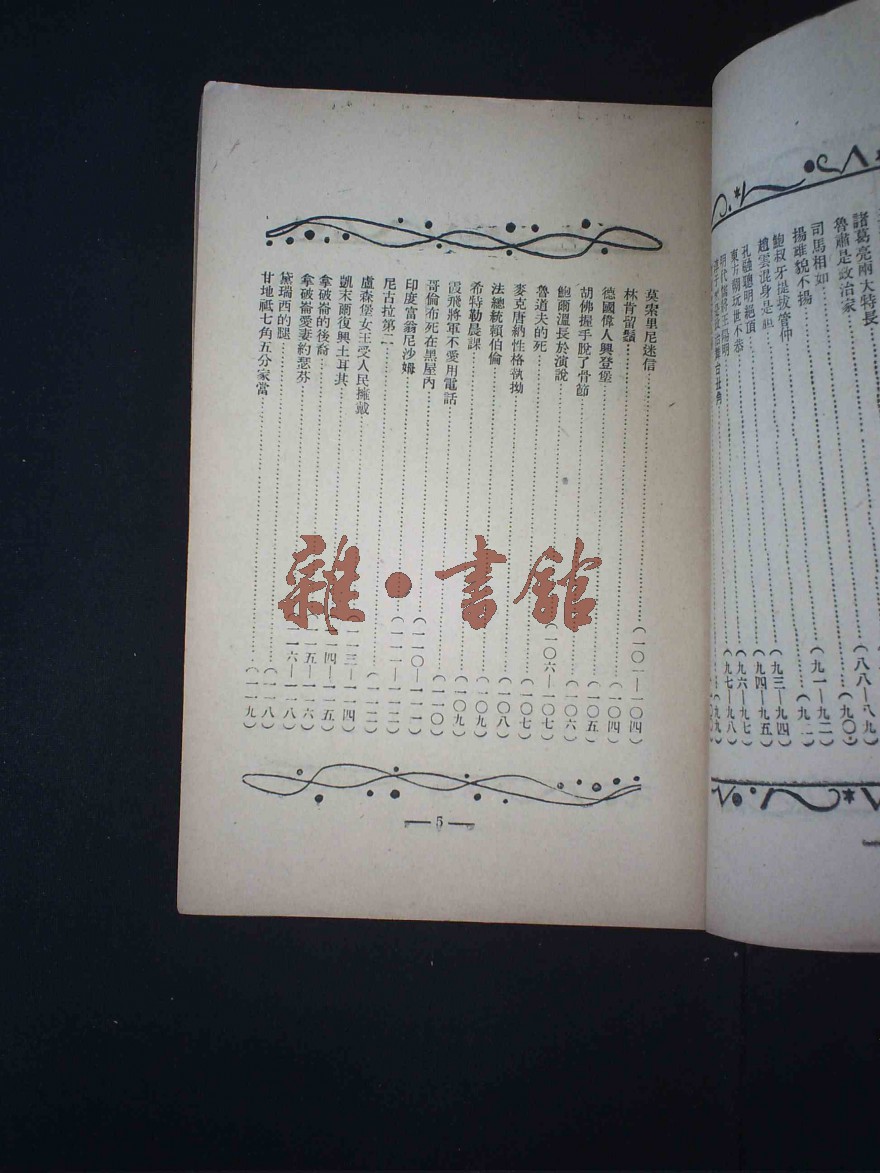 諸葛亮兩大特長 (八八—八九)
魯肅是政治家 (九〇)
司馬相如 (九一—九二)
揚雄貌不揚 (九二)
鮑叔牙提拔管仲 (九三—九四)
趙雲混身是膽 (九四—九五)
孔融聰明絕頂 (九六—九七)
東方朔玩世不恭 (九七—九八)
明代儒將王陽明 (九九)
莫索里尼迷信 (一〇一—一〇四)
林肯留鬚 (一〇四)
德國偉人興登堡 (一〇五)
胡佛握手脫了骨節 (一〇六)
鮑爾溫長於演說 (一〇六—一〇七)
魯道夫的死 (一〇七)
麥克唐納性格執拗 (一〇八)
法總統賴伯倫 (一〇九)
希特勒晨課 (一〇九)
霞飛將軍不愛用電話 (一一〇)
哥倫布死在黑屋內 (一一〇—一一一)
印度富翁尼沙姆 (一一一—一一二)
尼古拉第二 (一一二)
盧森堡女王受人民擁戴 (一一三—一一四)
凱末爾復興土耳其 (一一四—一一五)
拿破崙的後裔 (一一五—一一六)
拿破崙愛妻約瑟芬 (一一六—一一八)
黛瑞西的腿 (一一八)
甘地祇七角五分家當 (一一九)
5
雜·書館